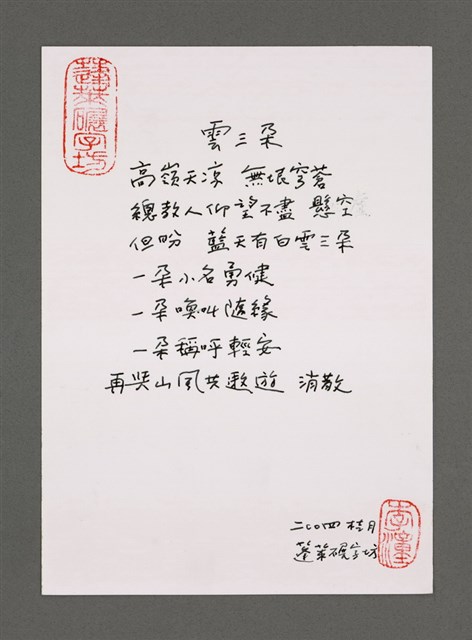 蓬萊碾字坊
雲三朵
高嶺天涼 無垠穹蒼
總教人仰望不盡 懸空
但盼 藍天有白雲三朵
一朵小名勇健
一朵喚叫隨緣
一朵稱呼輕安
再與山風共遨遊 消散
二〇〇四 桂月
蓬萊碾字坊
李潼